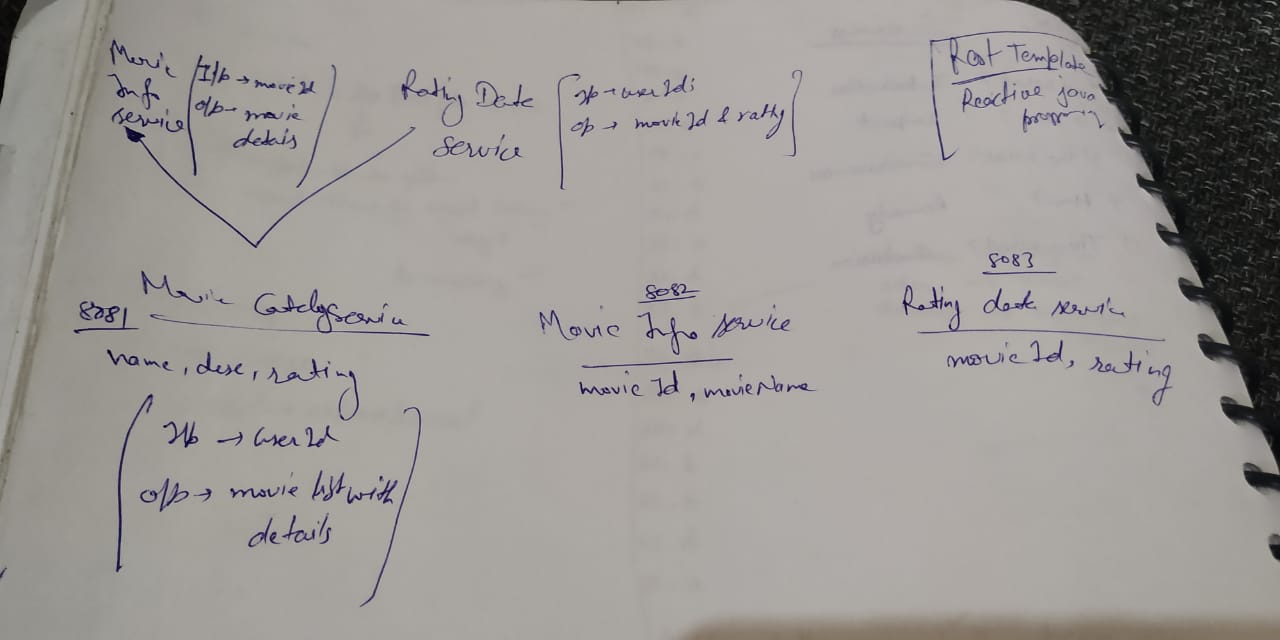 Movie
Info
service
I/p → movieId
o/p → movie
details
Rating Data
Service
I/p → userId
o/p → movieId & rating
Rest Template
Reactive java
8081
Movie Catalog Service
name, desc, rating
I/p → userId
o/p → movie list with
details
8082
Movie Info service
movieId, movieName
8083
Rating data service
movieId, rating